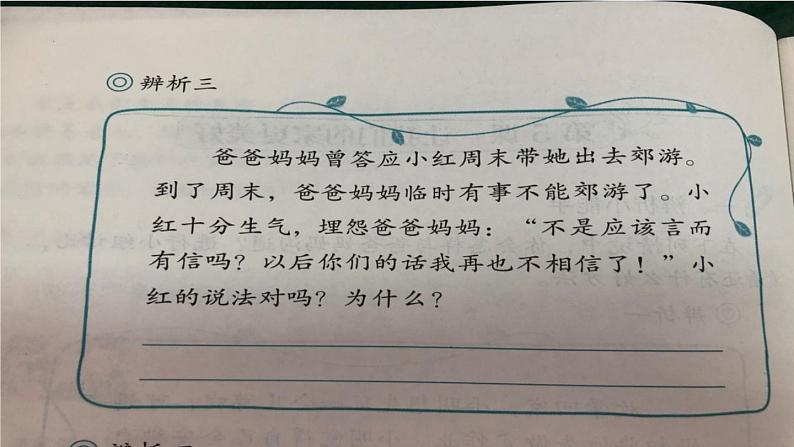 ◎ 辨析三
爸爸妈妈曾答应小红周末带她出去郊游。
到了周末，爸爸妈妈临时有事不能郊游了。小
红十分生气，埋怨爸爸妈妈：“不是应该言而
有信吗？以后你们的话我再也不相信了！”小
红的说法对吗？为什么？